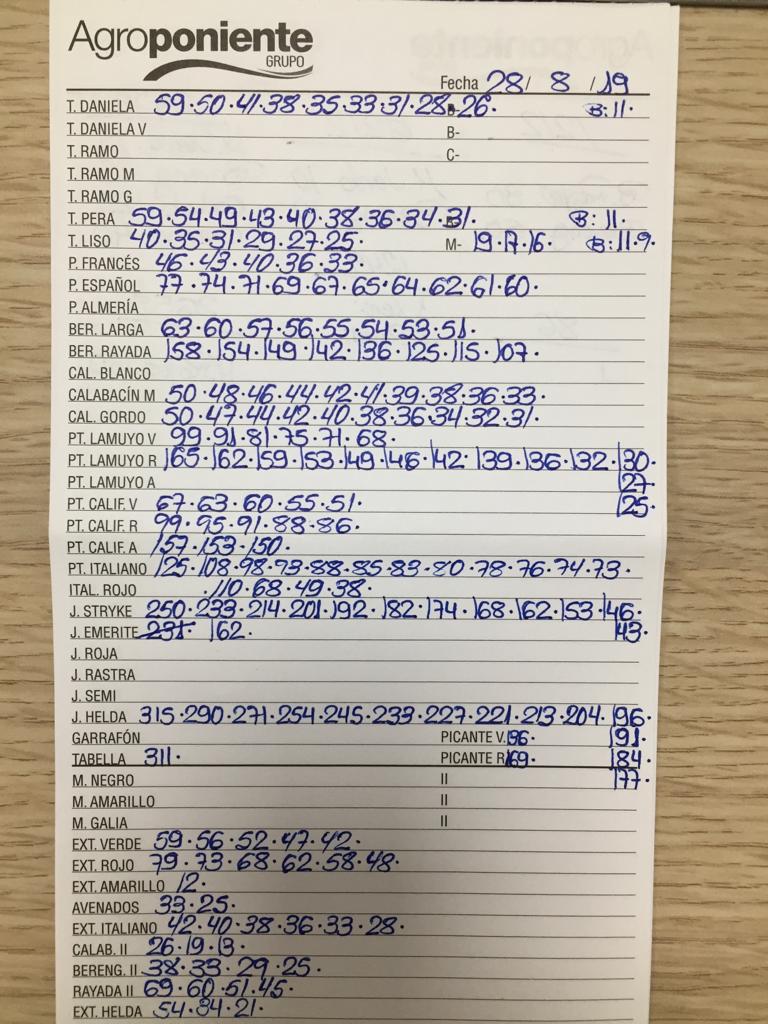 Agroponiente
GRUPO
Fecha 28/ 8 /19
T. DANIELA 59·50·41·38·35·33·31·28·26· B:11·
T. DANIELA V B-
T. RAMO C-
T. RAMO M
T. RAMO G
T. PERA 59·54·49·43·40·38·36·34·31· B: 11·
T. LISO 40·35·31·29·27·25· M- 19·17·16· B:11·9·
P. FRANCÉS 46·43·40·36·33·
P. ESPAÑOL 77·74·71·69·67·65·64·62·61·60·
P. ALMERÍA
BER. LARGA 63·60·57·56·55·54·53·51·
BER. RAYADA 158·154·149·142·136·125·115·107·
CAL. BLANCO
CALABACÍN M 50·48·46·44·42·41·39·38·36·33·
CAL. GORDO 50·47·44·42·40·38·36·34·32·31·
PT. LAMUYO V 99·91·81·75·71·68·
PT. LAMUYO R 165·162·159·153·149·146·142·139·136·132·130·
PT. LAMUYO A 127·
PT. CALIF. V 67·63·60·55·51· 125·
PT. CALIF. R 99·95·91·88·86·
PT. CALIF. A 157·153·150·
PT. ITALIANO 125·108·98·93·88·85·83·80·78·76·74·73·
ITAL. ROJO 110·68·49·38·
J. STRYKE 250·233·214·201·192·182·174·168·162·153·146·
J. EMERITE 231· 162· 143·
J. ROJA
J. RASTRA
J. SEMI
J. HELDA 315·290·271·254·245·233·227·221·213·204·196·
GARRAFÓN PICANTE V. 196· 191·
TABELLA 311· PICANTE R 169· 184·
M. NEGRO II 177·
M. AMARILLO II
M. GALIA II
EXT. VERDE 59·56·52·47·42·
EXT. ROJO 79·73·68·62·58·48·
EXT. AMARILLO 12·
AVENADOS 33·25·
EXT. ITALIANO 42·40·38·36·33·28·
CALAB. II 26·19·13·
BERENG. II 38·33·29·25·
RAYADA II 69·60·51·45·
EXT. HELDA 54·34·21·